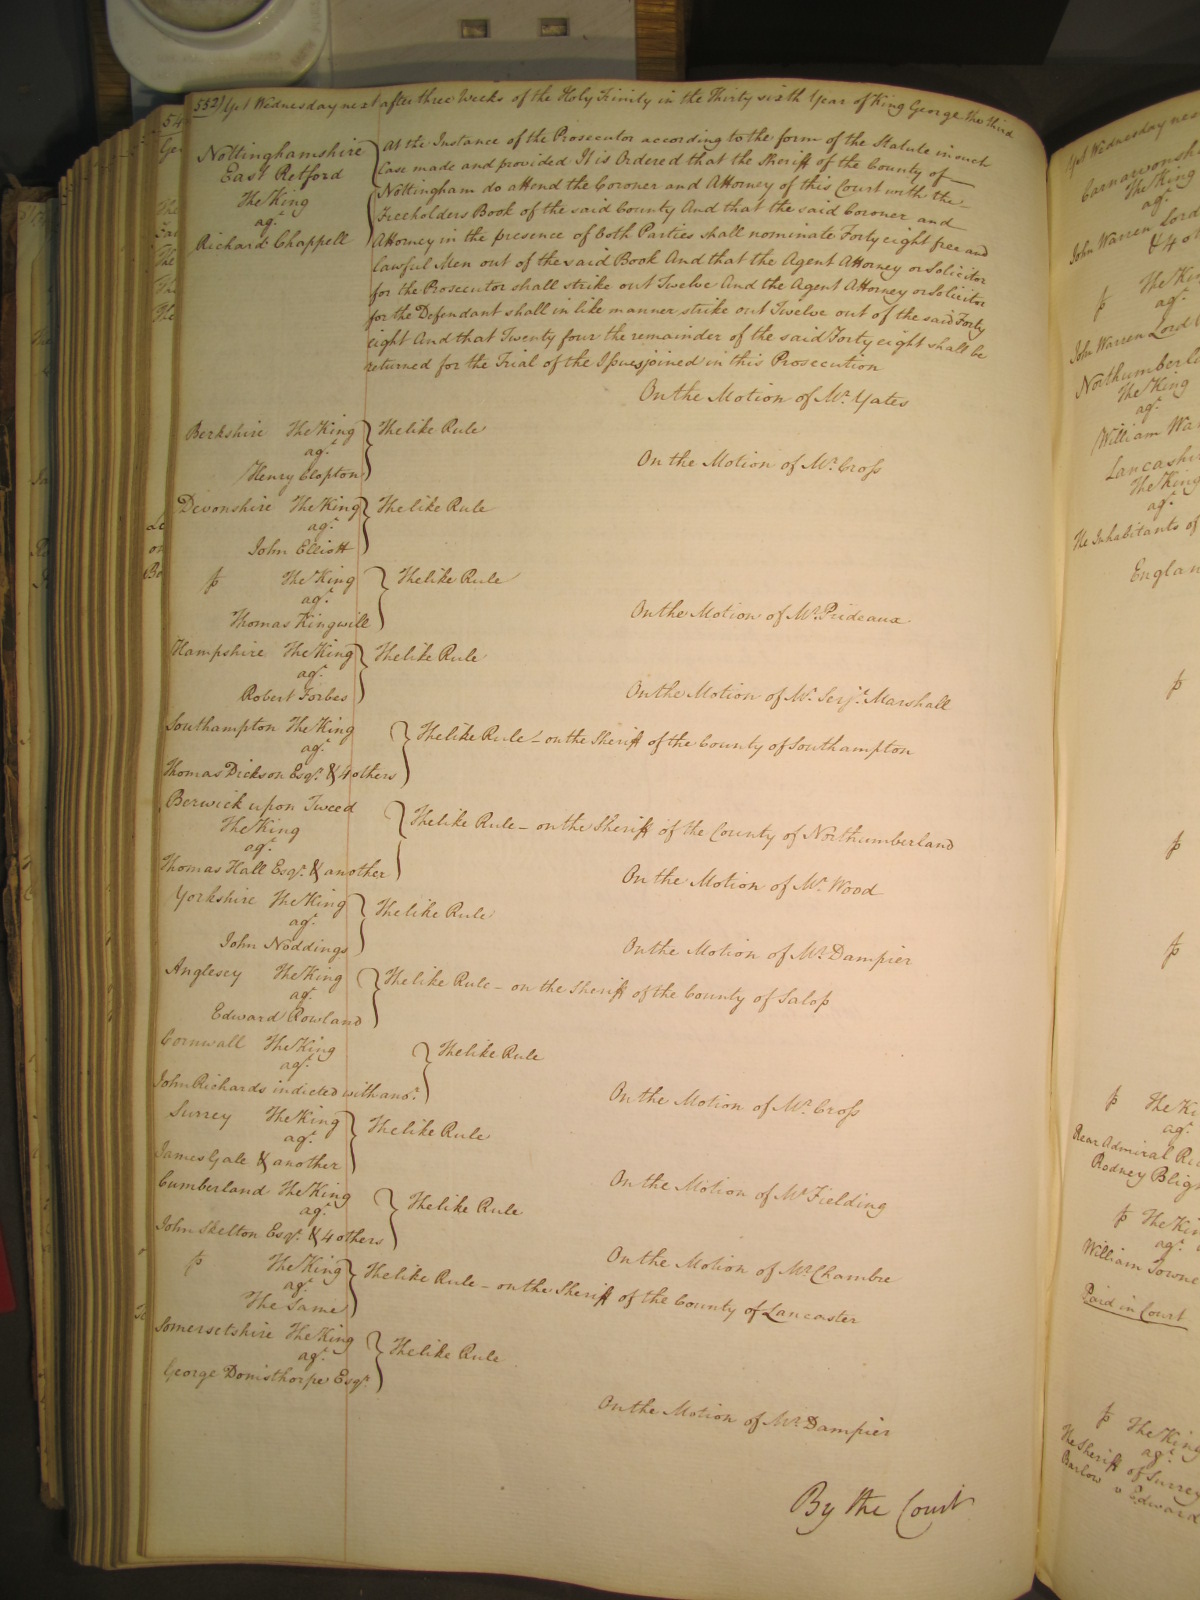 552) Yet Wednesday next after three Weeks of the Holy Trinity in the Thirty sixth Year of King George the third
Nottinghamshire
East Retford
The King
agt.
Richard Chappell
At the Instance of the Prosecutor according to the form of the Statute in such
Case made and provided It is Ordered that the Sheriff of the County of
Nottingham do attend the Coroner and Attorney of this Court with the
Freeholders Book of the said County And that the said Coroner and
Attorney in the presence of both Parties shall nominate Forty eight free and
lawful Men out of the said Book And that the Agent Attorney or Solicitor
for the Prosecutor shall strike out Twelve And the Agent Attorney or Solicitor
for the Defendant shall in like manner strike out Twelve out of the said Forty
eight And that Twenty four the remainder of the said Forty eight shall be
returned for the Trial of the Issues joined in this Prosecution
On the Motion of Mr. Yates
Berkshire The King
agt.
Henry Clopton
The like Rule
On the Motion of Mr. Cross
Devonshire The King
agt.
John Elliott
The like Rule
p The King
agt.
Thomas Kingwill
The like Rule
On the Motion of Mr. Prideaux
Hampshire The King
agt.
Robert Forbes
The like Rule
On the Motion of Mr. Serjt. Marshall
Southampton The King
agt.
Thomas Dickson Esqr. & 4 others
The like Rule - on the Sheriff of the County of Southampton
Berwick upon Tweed
The King
agt.
Thomas Hall Esqr. & another
The like Rule - on the Sheriff of the County of Northumberland
On the Motion of Mr. Wood
Yorkshire The King
agt.
John Noddings
The like Rule
On the Motion of Mr. Dampier
Anglesey The King
agt.
Edward Rowland
The like Rule - on the Sheriff of the County of Salop
Cornwall The King
agt.
John Richards indicted with anor.
The like Rule
On the Motion of Mr. Cross
Surrey The King
agt.
James Gale & another
The like Rule
On the Motion of Mr. Fielding
Cumberland The King
agt.
John Skelton Esqr. & 4 others
The like Rule
On the Motion of Mr. Chambre
p The King
agt.
The Same
The like Rule - on the Sheriff of the County of Lancaster
Somersetshire The King
agt.
George Donisthorpe Esqr.
The like Rule
On the Motion of Mr. Dampier
By the Court
Yet Wednesday
The King
agt.
John Warren Lord
& 4
p The
agt.
John Warren Lord
The King
agt.
William
The King
agt.
The Inhabitants of
p
p
p
p The
agt.
Rear Admiral
Rodney
p The
agt.
William Towne
Paid in Court
p The King
agt.
The Sheriff of Surrey
Barlow v Edward